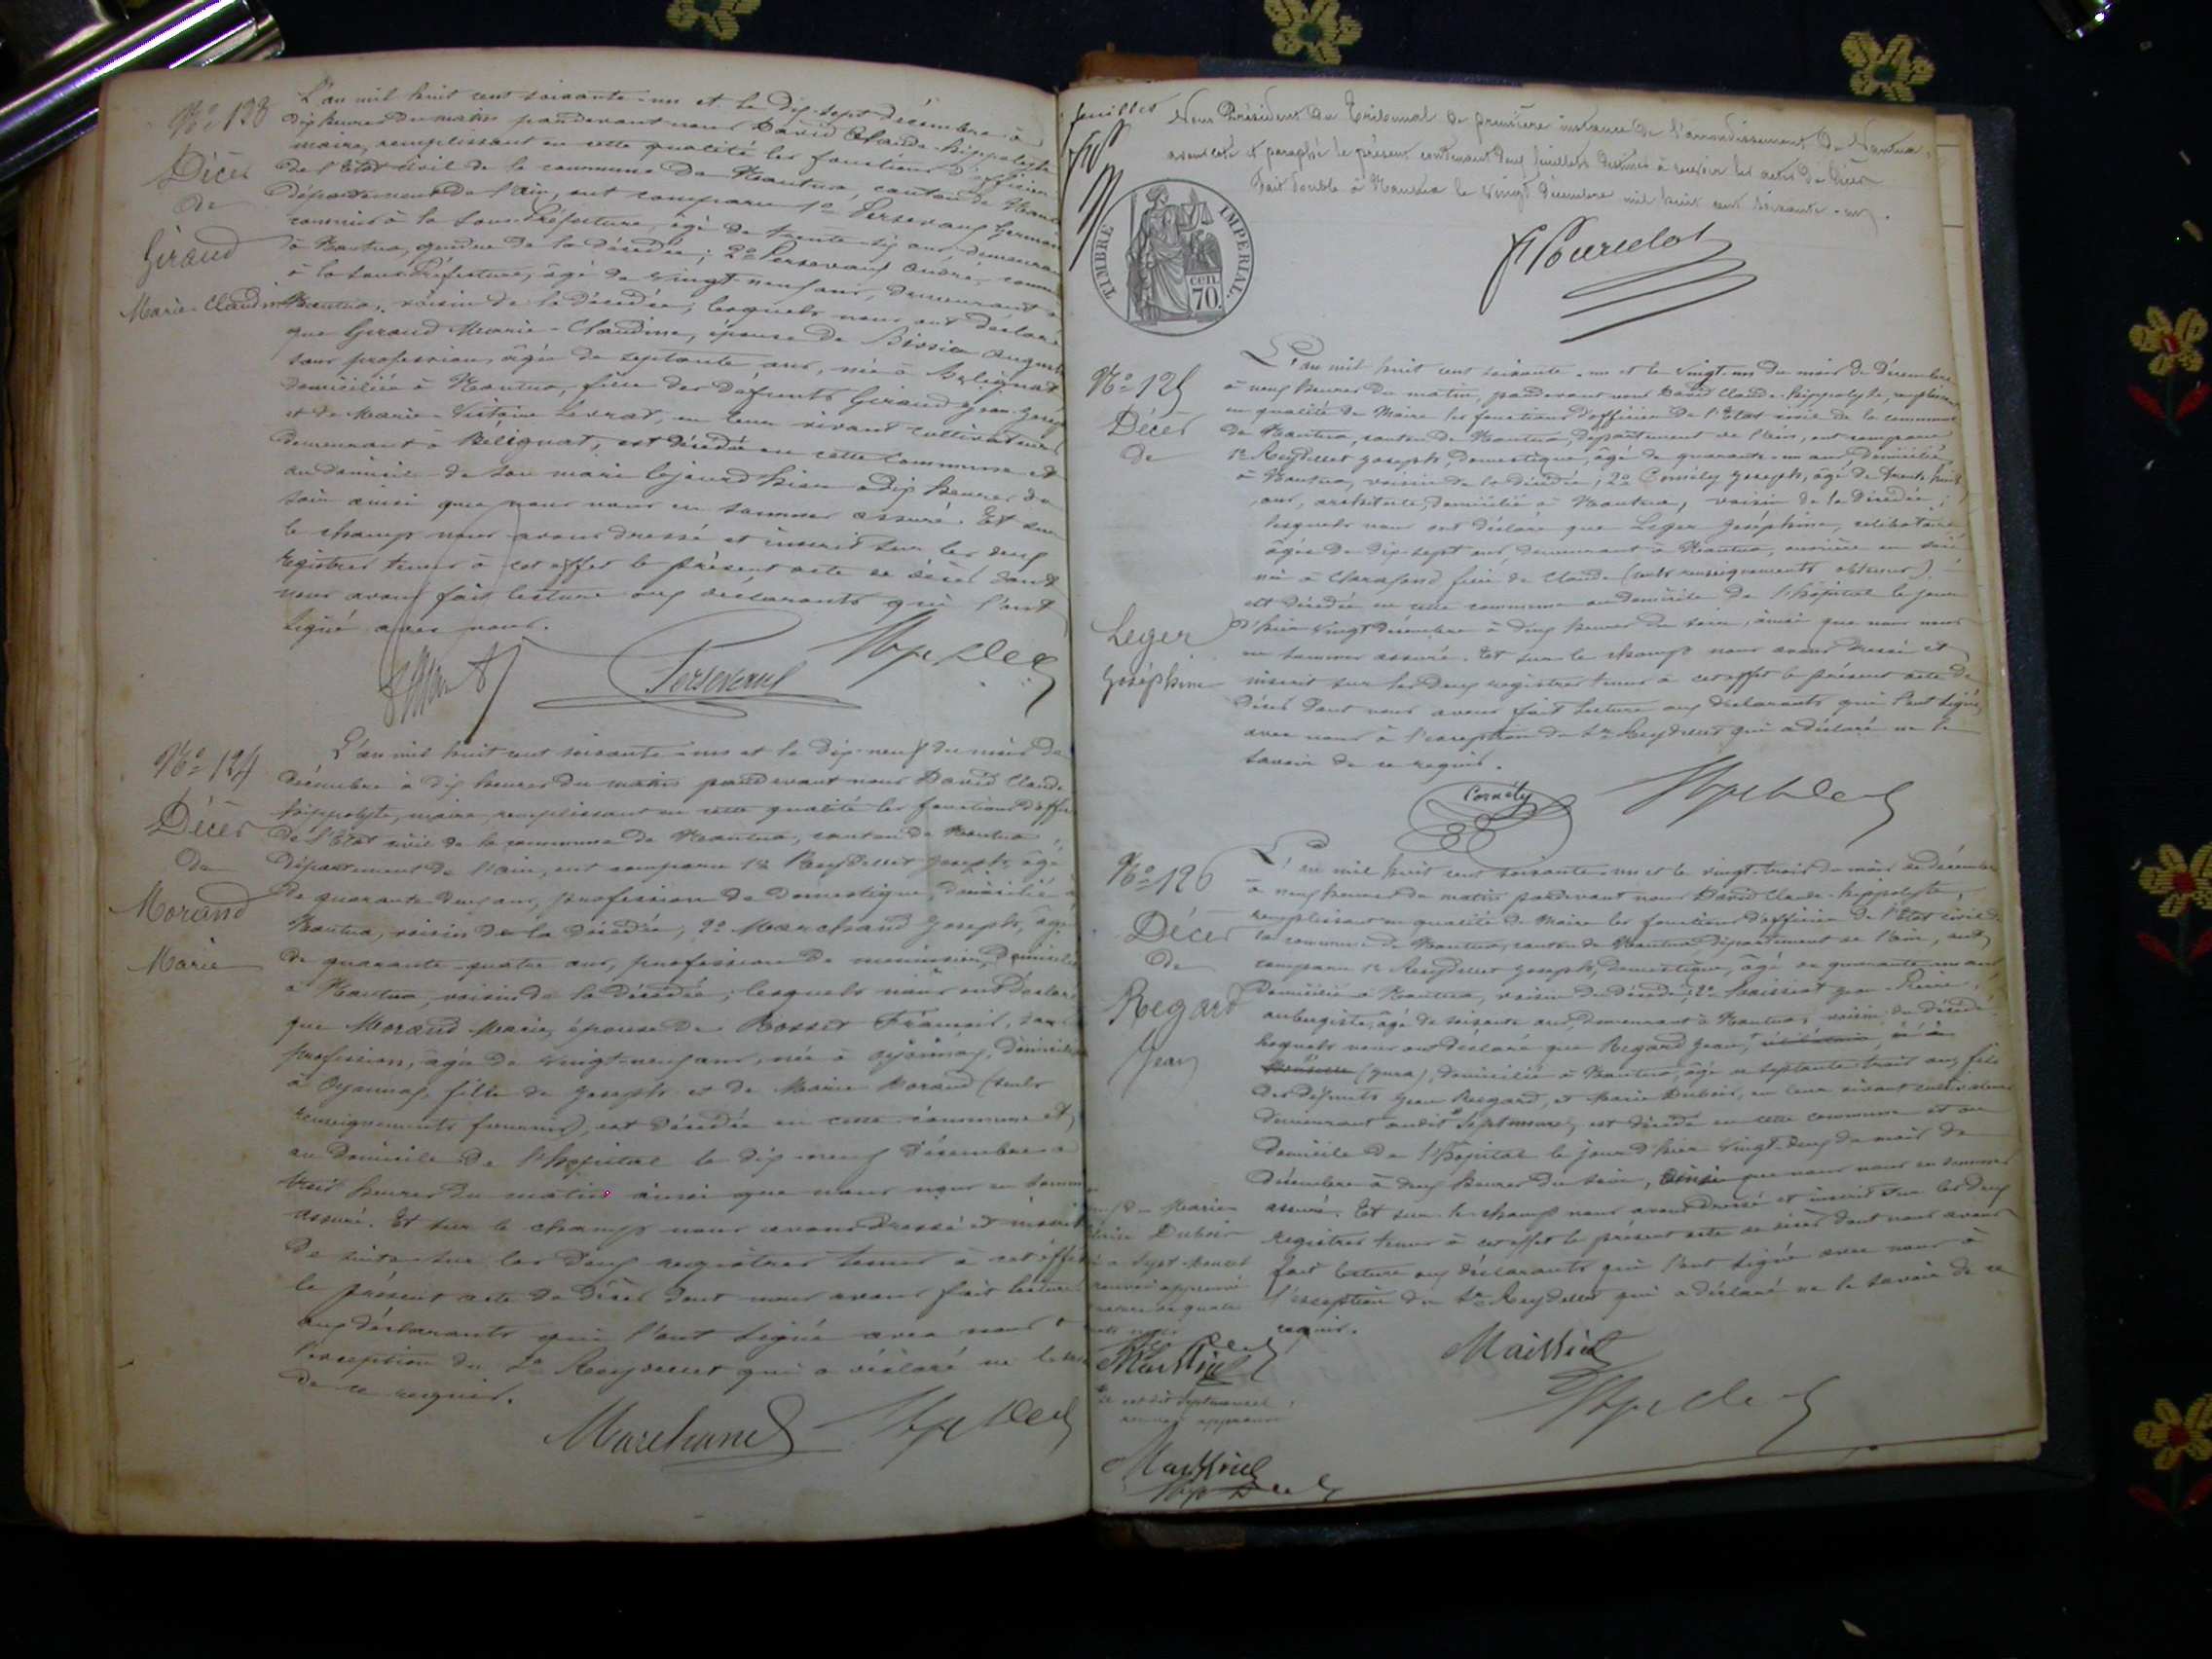 N° 123
Décès
de
Giraud
Marie-Claudine
L'an mil huit cent soixante-un et le dix-sept décembre à
dix heures du matin pardevant nous David Claude-hippolyte
maire, remplissant en cette qualité les fonctions d'officier
de l'État civil de la commune de Nantua, canton de Nantua
département de l'Ain, ont comparu 1° Persevaux Germain
commis à la Sous-Préfecture, âgé de trente-six ans, demeurant
à Nantua, de la décédée; 2° Persevaux André, commis
à la sous-Préfecture, âgé de vingt-neuf ans, demeurant à
Nantua, voisin de la décédée; lesquels nous ont déclaré
que Giraud Marie-Claudine, épouse de
sans profession, âgée de septante ans, née à Bélignat
domiciliée à Nantua, fille des défunts Giraud Jean-Joseph
et de Marie-Victoire Levrat, en leur vivant cultivateurs
demeurant à Bélignat, est décédée en cette commune et
au domicile de son mari le jour d'hier à dix heures du
soir ainsi que nous nous en sommes assuré. Et sur
le champ nous avons dressé et inscrit sur les deux
registres tenus à cet effet le présent acte de décès dont
nous avons fait lecture aux déclarants qui l'ont
signé avec nous.
Persevaux
N° 124
Décès
de
Morand
Marie
L'an mil huit cent soixante-un et le dix-neuf du mois de
décembre à dix heures du matin pardevant nous David Claude
hippolyte, maire, remplissant en cette qualité les fonctions d'offi
de l'État civil de la commune de Nantua, canton de Nantua
département de l'Ain, ont comparu 1° Reydellet Joseph, âgé
de quarante-deux ans, profession de domestique, domicilié à
Nantua, voisin de la décédée, 2° Marchand Joseph, âgé
de quarante-quatre ans, profession de menuisier, domicilié
à Nantua, voisin de la décédée; lesquels nous ont déclaré
que Morand Marie, épouse de Rosset François, sans
profession, âgée de vingt-neuf ans, née à Oyonnax, domiciliée
à Oyonnax, fille de Joseph et de Marie Morand (seuls
renseignements fournis), est décédée en cette commune et
au domicile de l'hôpital le dix-neuf décembre à
trois heures du matin ainsi que nous nous en sommes
assuré. Et sur le champ nous avons dressé et inscrit
de suite sur les deux registres tenus à cet effet
le présent acte de décès dont nous avons fait lecture
aux déclarants qui l'ont signé avec nous à
l'exception du Sr Reydellet qui a déclaré ne le savoir
de ce requis.
Marchand
feuillet
Nous Président du Tribunal de première instance de l'arrondissement de Nantua
avons coté et paraphé le présent contenant deux feuillets destinés à recevoir les actes de décès
Fait double à Nantua le vingt décembre mil huit cent soixante-un.
TIMBRE IMPERIAL.
70 cen
N° 125
Décès
de
Leger
Joséphine
L'an mil huit cent soixante-un et le vingt-un du mois de décembre
à neuf heures du matin, pardevant nous David Claude-hippolyte, remplissant
en qualité de Maire les fonctions d'officier de l'État civil de la commune
de Nantua, canton de Nantua, département de l'Ain, ont comparu
1° Reydellet Joseph, domestique, âgé de quarante-un ans, domicilié
à Nantua, voisin de la décédée, 2° Cornély Joseph, âgé de trente-huit
ans, architecte, domicilié à Nantua, voisin de la décédée;
lesquels nous ont déclaré que Leger Joséphine, célibataire
âgée de dix-sept ans, demeurant à Nantua, ouvrière en soie
née à Charafond fille de Claude (seuls renseignements obtenus)
est décédée en cette commune au domicile de l'hôpital le jour
d'hier vingt décembre à deux heures du soir, ainsi que nous nous
en sommes assuré. Et sur le champ nous avons dressé et
inscrit sur les deux registres tenus à cet effet le présent acte de
décès dont nous avons fait lecture aux déclarants qui l'ont signé
avec nous à l'exception du Sr Reydellet qui a déclaré ne le
savoir de ce requis.
Cornély
N° 126
Décès
de
Regard
Jean
L'an mil huit cent soixante-un et le vingt-trois du mois de décembre
à neuf heures du matin pardevant nous David Claude-hippolyte,
remplissant en qualité de Maire les fonctions d'officier de l'État civil de
la commune de Nantua, canton de Nantua, département de l'Ain, ont
comparu 1° Reydellet Joseph, domestique, âgé de quarante-un ans
domicilié à Nantua, voisin du décédé; 2° Maissiat Jean-Pierre,
aubergiste, âgé de soixante ans, demeurant à Nantua, voisin du décédé
lesquels nous ont déclaré que Regard Jean, né à
(Jura), domicilié à Nantua, âgé de septante-trois ans, fils
des défunts Jean Regard, et Marie Dubois, en leur vivant cultivateurs
demeurant audit Septmoncel, est décédé en cette commune et au
domicile de l'hôpital le jour d'hier vingt-deux du mois de
décembre à deux heures du soir, ainsi que nous nous en sommes
assuré. Et sur le champ nous avons dressé et inscrit sur les deux
registres tenus à cet effet le présent acte de décès dont nous avons
fait lecture aux déclarants qui l'ont signé avec nous à
l'exception du Sr Reydellet qui a déclaré ne le savoir de ce
requis.
Maissiat
Marie
Dubois
à Sept-Moncel
renvoi approuvé
Maissiat
Septmoncel
renvoi approuvé
Maissiat